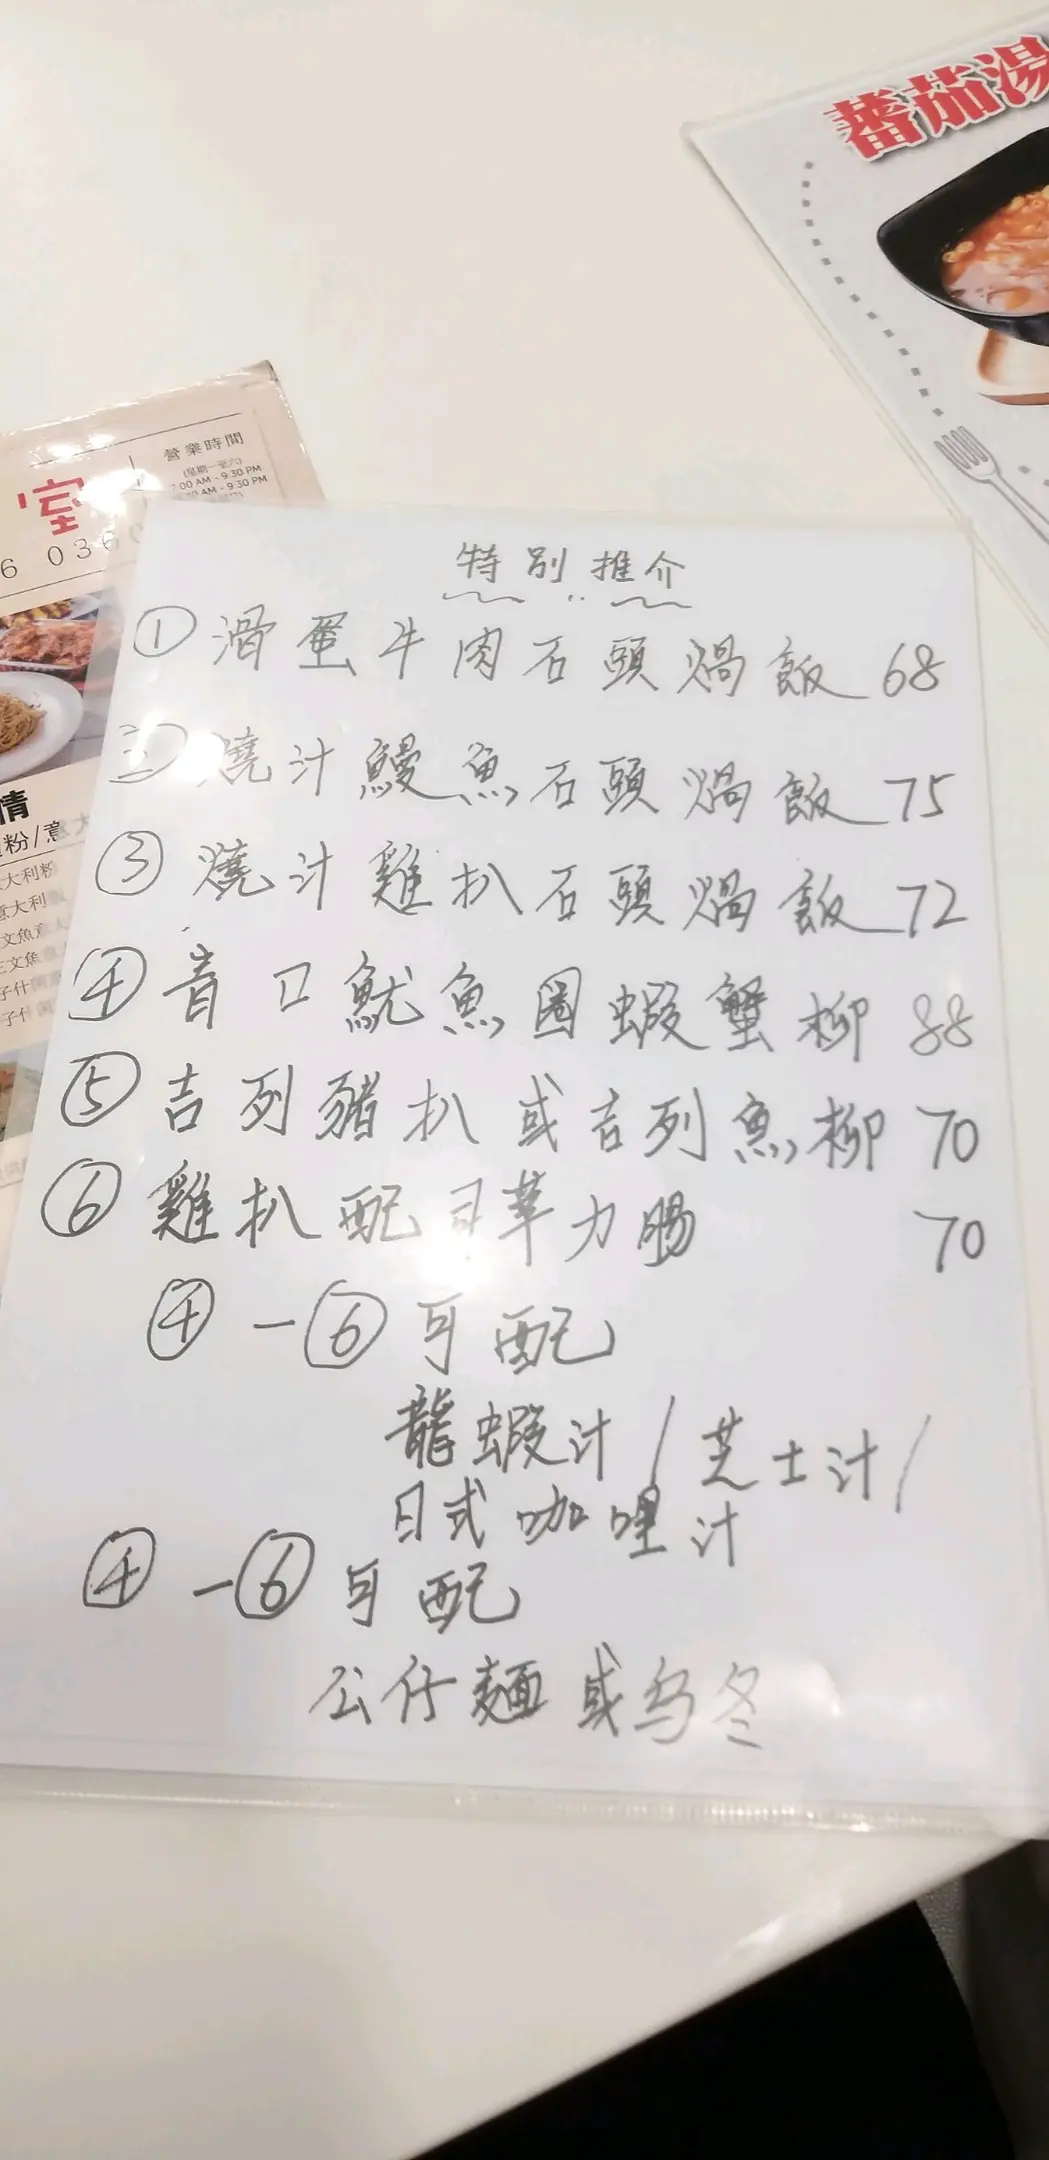 蕃茄湯
營業時間
(星期一至六)
7:00 AM - 9:30 PM
AM - 9:30 PM
室
6 036
特別推介
① 滑蛋牛肉石頭焗飯 68
② 燒汁鰻魚石頭焗飯 75
③ 燒汁雞扒石頭焗飯 72
④ 青口魷魚圈蝦蟹柳 88
⑤ 吉列豬扒或吉列魚柳 70
⑥ 雞扒配司華力腸 70
④ - ⑥ 可配
龍蝦汁 / 芝士汁 /
日式咖哩汁
④ - ⑥ 可配
公仔麵或乌冬
情
粉/意大
大利粉
意大利
文魚意
三文魚
子什
子什